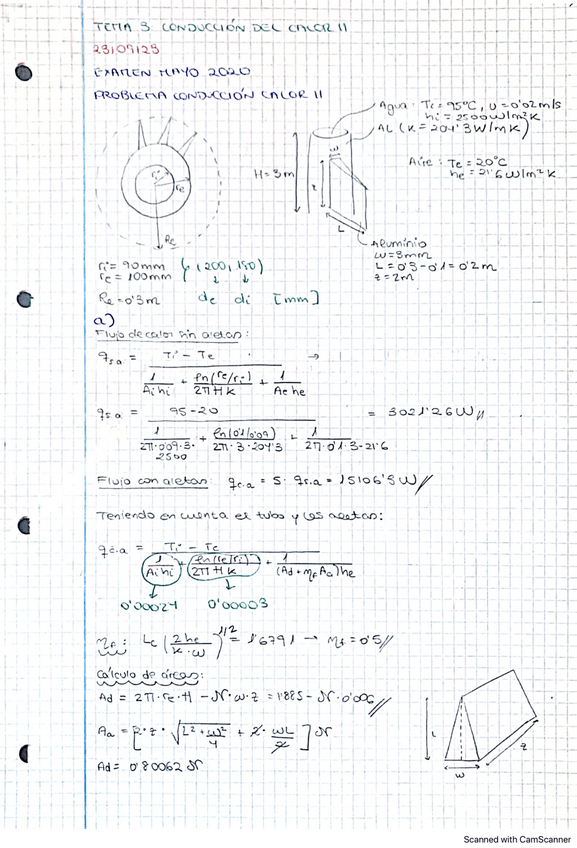 TEMA 3 CONDUCCIÓN DEL CALOR II
28/09/23
EXAMEN MAYO 2020
PROBLEMA CONDUCCIÓN CALOR II
Agua: Ti = 95°C, U = 0'02 m/s
hi = 2500 W/m²K
AL (K = 204'3 W/mK)
Aire: Te = 20°C
he = 21'6 W/m²K
H = 3m
z
L
ri
re
Re
Aluminio
w = 3mm
L = 0'3 - 0'1 = 0'2m
z = 2m
ri = 90mm
re = 100mm
Re = 0'3m
de di [mm]
a)
Flujo de calor sin aletas:
qsa = Ti - Te / (1/Aihi + ln(re/ri)/2πHk + 1/Aehe) →
qsa = 95-20 / (1/2π·0'09·3·2500 + ln(0'1/0'09)/2π·3·204'3 + 1/2π·0'1·3·21'6) = 3021'26W//
Flujo con aletas: qc.a = 5·qs.a = 15106'3W//
Teniendo en cuenta el tubo y las aletas:
qc.a = Ti - Te / (1/Aihi + ln(re/ri)/2πHk + 1/(Ad + ηf Aa)he)
0'00024 0'00003
ηf: Lc (2he/k·w)^1/2 = 1'6791 → ηf = 0'5//
Cálculo de áreas:
Ad = 2π·re·H - N·w·z = 1'885 - N·0'006//
Aa = [2·z·√(L² + w²/4) + 2·wL/2] N
Ad = 0'80062 N
L
w
z
Scanned with CamScanner